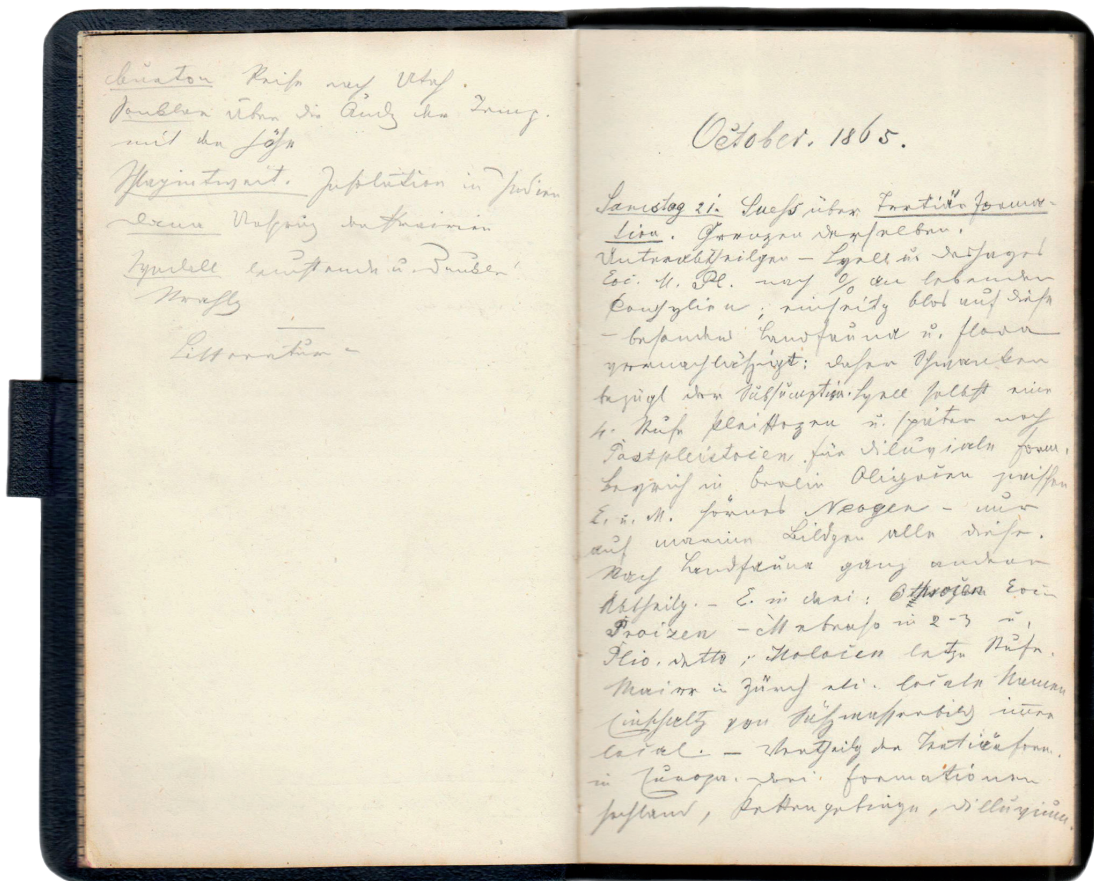 Burton Reise nach Utah.
Sonklar über die Ändg der Temp.
mit der Höhe
Schlagintweit. Insolation in Indien
Dana Ursprung der Prairien
Tyndall leuchtende u. dunkle
Strahlg
Litteratur
October. 1865.
Samstag 21. Suess über Tertiärforma-
tion. Grenzen derselben.
Unterabtheilgen – Lyell u. Deshayes
Eoc. M. Pl. nach % an lebenden
Conchylien; einseitig blos auf diese
– besonders Landfauna u. flora
vernachläßigt; daher Schwanken
bezügl der Subsumption. Lyell selbst eine
4. Stufe Pleistozen u. später noch
Postpleistocen für diluviale form.
Beyrich in Berlin Oligocen zwischen
E. u. M. Hörnes Neogen – nur
auf marine Bildgen alle diese.
Nach Landfauna ganz andere
Abtheilg. – E. in drei: Eocen
– M ebenso in 2-3 u.
Plio. detto; Holocen letzte Stufe.
Maier in Zürich etc. locale Namen
Einschaltg von Süßwasserbildg immer
local. – Vertheilg der Tertiärform.
in Europa. drei formationen
Hochland, Kettengebirge, Dilluvium.